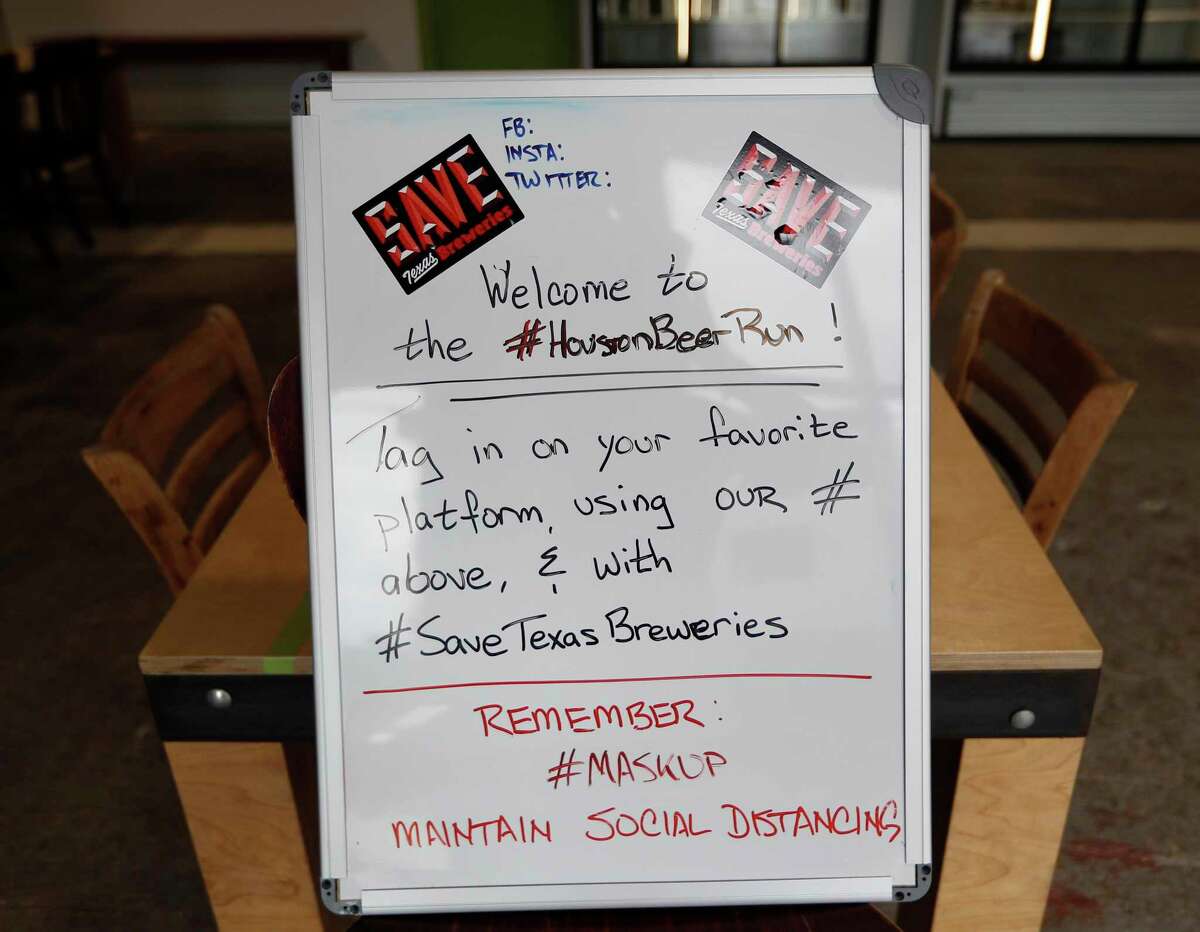 FB:
INSTA:
TWITTER:
SAVE
Texas Breweries
SAVE
Texas Breweries
Welcome to
the #HoustonBeerRun!
Tag in on your favorite
platform, using OUR #
above, & with
#SaveTexasBreweries
REMEMBER:
#MASKUP
MAINTAIN SOCIAL DISTANCING